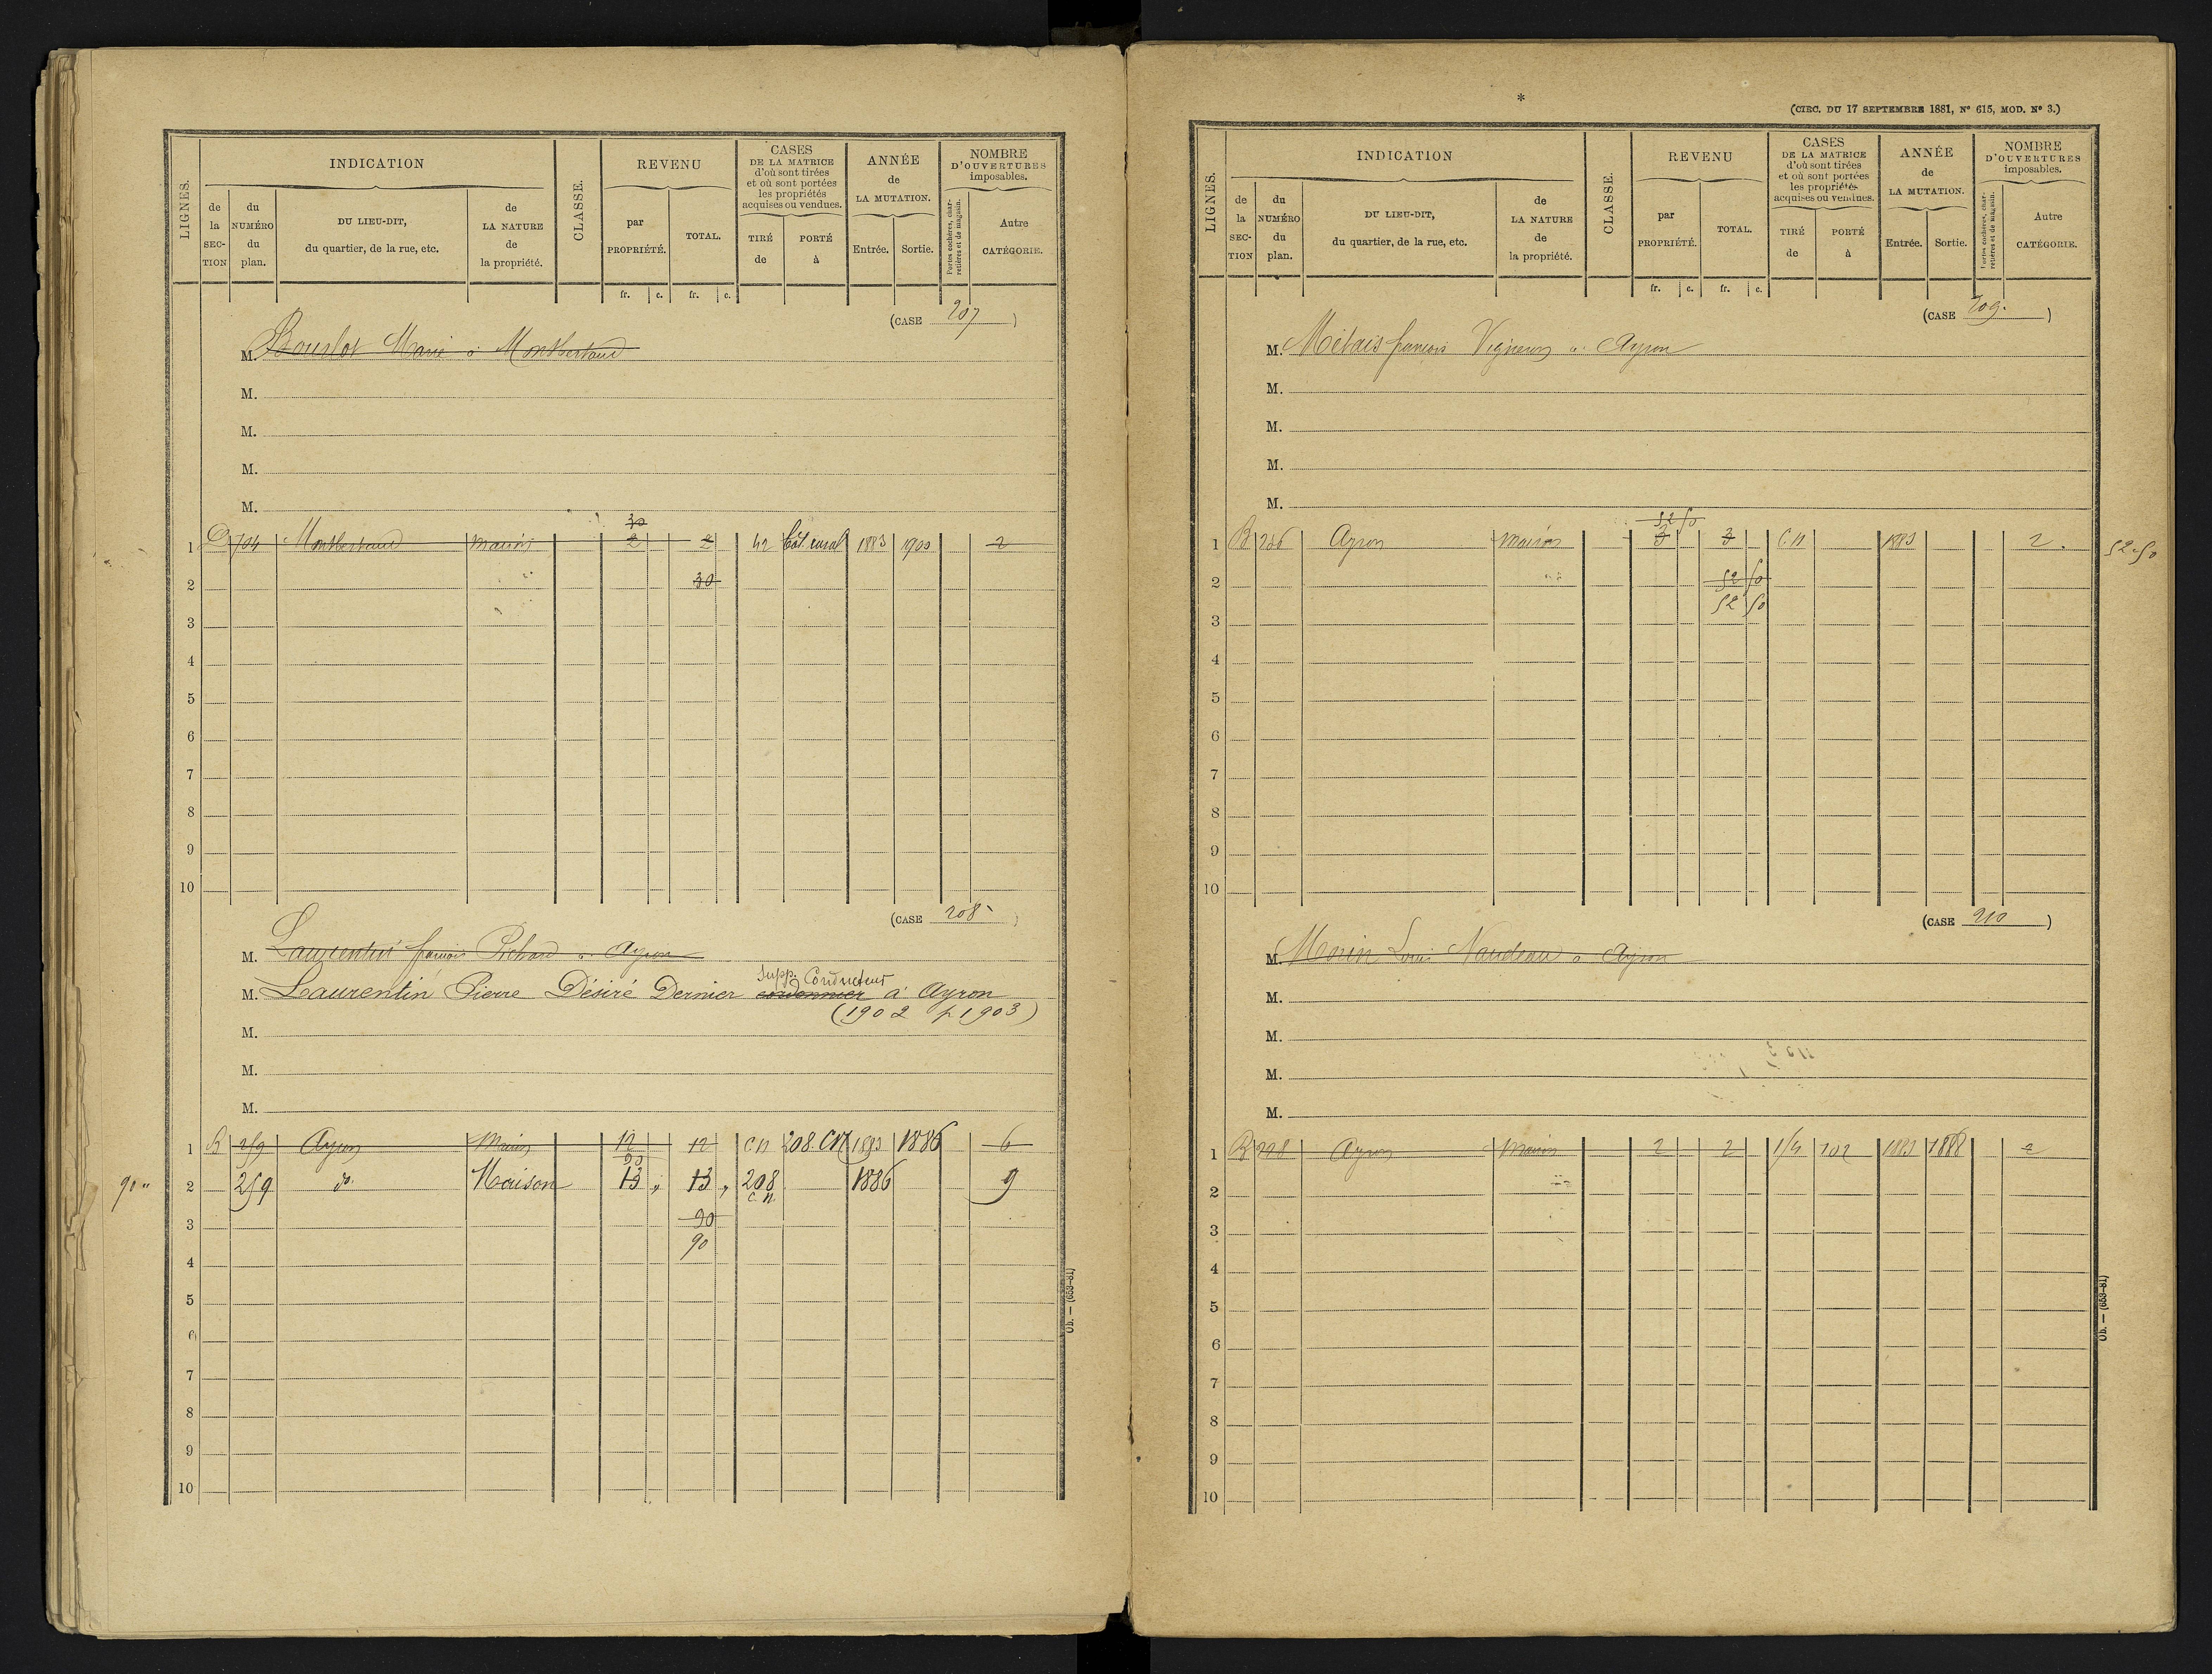 INDICATION
REVENU
CASES
DE LA MATRICE
d'où sont tirées
et où sont portées
les propriétés
acquises ou vendues.
ANNÉE
de
LA MUTATION.
NOMBRE
D'OUVERTURES
imposables.
LIGNES.
de la SECTION
du NUMÉRO du plan.
DU LIEU-DIT,
du quartier, de la rue, etc.
de LA NATURE de la propriété.
CLASSE.
par PROPRIÉTÉ.
TOTAL.
TIRÉ de
PORTÉ à
Entrée.
Sortie.
Portes cochères, charretières et de magasin.
Autre CATÉGORIE.
fr. c. fr. c.
(CASE 207)
M. Bourlot Marie à Montbertaud
M.
M.
M.
M.
30
1 D 704 Montbertaud maison 2 2 42 Bât. rural 1883 1900 2
2 30
3
4
5
6
7
8
9
10
(CASE 208)
M. Laurentin françois Richard à Ayron
Supp. Conducteur
M. Laurentin Pierre Désiré Dernier cordonnier à Ayron
(1902 p 1903)
M.
M.
M.
1 B 259 Ayron Maison 12 12 C.N 208.CN 1883 1886 6
90
90 " 2 259 do. Maison 13 " 13 " 208 1886 9
C.N.
3 90
90
4
5
6
7
8
9
10
Ob. — (653-81)
*
(CIRC. DU 17 SEPTEMBRE 1881, N° 615, MOD. N° 3.)
INDICATION
REVENU
CASES
DE LA MATRICE
d'où sont tirées
et où sont portées
les propriétés
acquises ou vendues.
ANNÉE
de
LA MUTATION.
NOMBRE
D'OUVERTURES
imposables.
LIGNES.
de la SECTION
du NUMÉRO du plan.
DU LIEU-DIT,
du quartier, de la rue, etc.
de LA NATURE de la propriété.
CLASSE.
par PROPRIÉTÉ.
TOTAL.
TIRÉ de
PORTÉ à
Entrée.
Sortie.
Portes cochères, charretières et de magasin.
Autre CATÉGORIE.
fr. c. fr. c.
(CASE 209.)
M. Métais françois Vigneron à Ayron
M.
M.
M.
M.
52 50
1 B 286 Ayron maison 3 3 C.N 1883 2. 52.50
2 52 50
52 50
3
4
5
6
7
8
9
10
(CASE 210)
M. Morin Louis Naudeau à Ayron
M.
M.
M.
M.
1 B 228 Ayron maison 2 2 154 102 1883 1888 2
2
3
4
5
6
7
8
9
10
Ob. — (653-81)